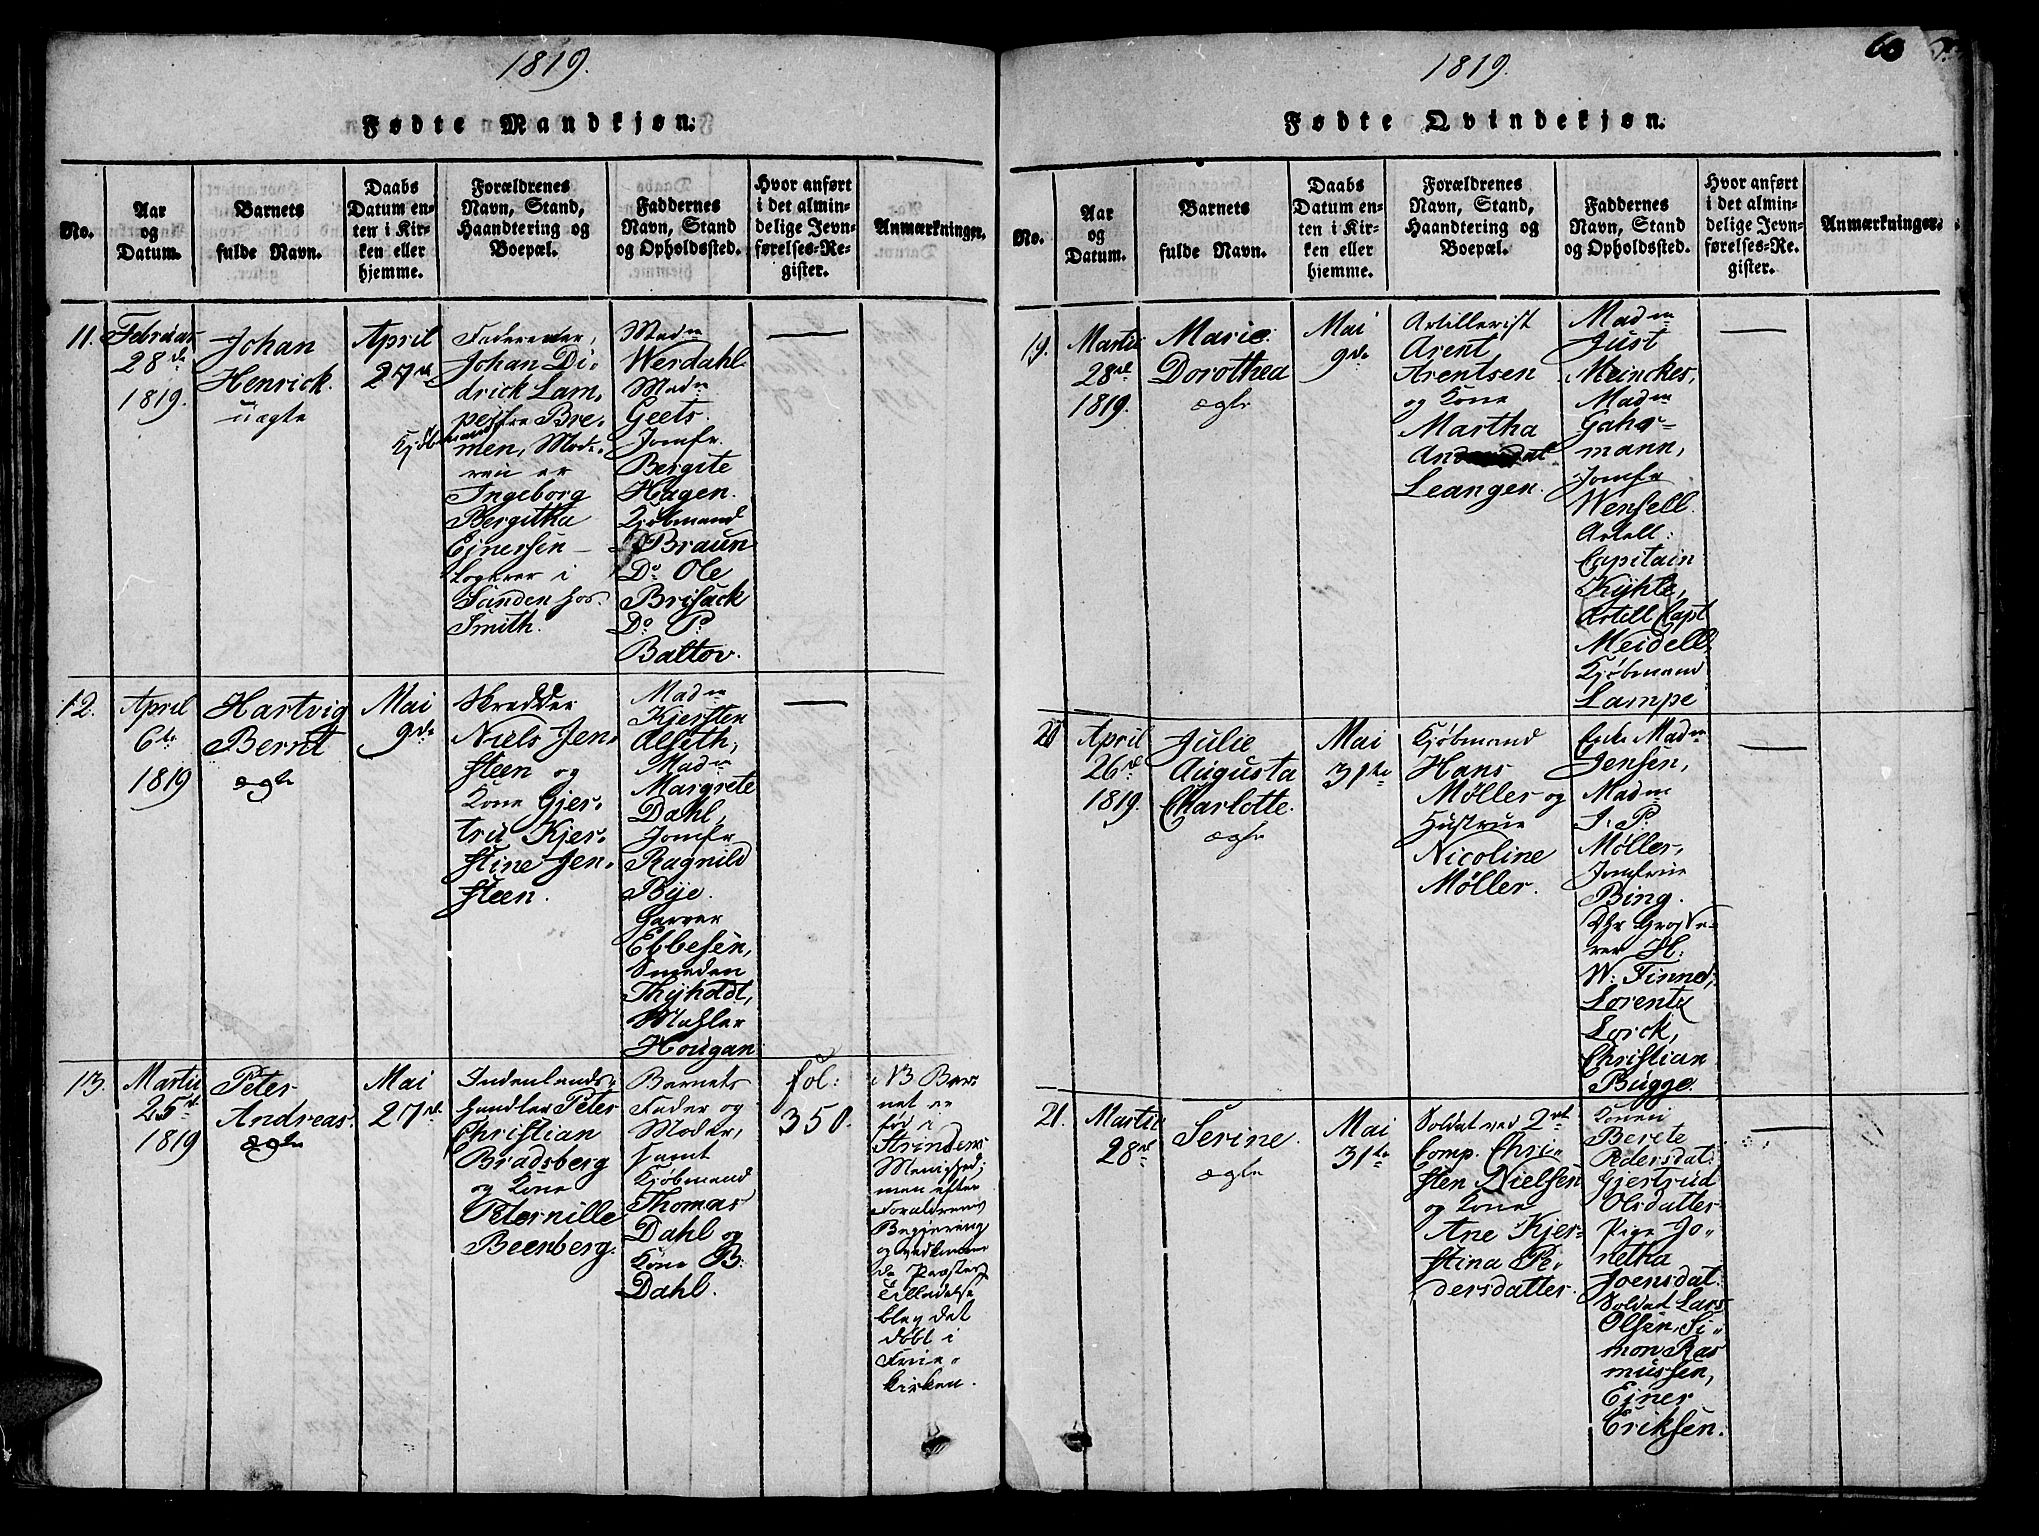 1819.
Fødte Mandkjøn.
No.
Aar
og
Datum.
Barnets
fulde Navn.
Daabs
Datum en-
ten i Kir-
ken eller
hjemme.
Forældrenes
Navn, Stand,
Haandtering og
Boepæl.
Faddernes
Navn, Stand
og Opholdssted.
Hvor anført
i det almin-
delige Jevn-
førelses-Re-
gister.
Anmærkninger.
11.
Februar
28de
1819.
Johan
Henrick.
uægte
April
27de
Faderen er,
Johan Di-
drick Lam-
pe fra Bre-
Kjøbmand
men, Mod-
ren er
Ingeborg
Bergitha
Ejnersen
Logerer i
Sanden hos
Smith.
Madm
Werdahl
Madm
Geets.
Jomfr
Bergite
Hagen.
Kjøbmand
Braun
Do Ole
Brisack
Do P.
Baltov.
12.
April
6te
1819
Hartvig
Bernt
ægte
Mai
9de
Skrædder
Niels Jen-
steen og
Kone Gjer-
trud Kjer-
stine Jen-
steen.
Madm
Kjersten
Alseth,
Madm
Margrete
Dahl,
Jomfr
Ragnild
Bye.
Garver
Ebbesen,
Smeden
Thyholdt,
Mahler
Hougan
13.
Martii
25de
1819
Peter
Andreas.
ægte
Mai
27de
Indenlands-
handler Peter
Christian
Bradsberg
og Kone
Peternille
Beenberg.
Barnets
Fader og
Moder,
samt
Kjøbmand
Thomas
Dahl og
Kone B.
Dahl.
fol:
350.
NB Bar-
net er
fød i
Strindens
Menighed;
men efter
Forældrenes
Begjering
og vedkommen-
de Præsters
Tilladelse
blev det
døbt i
Frue-
kirken.
1819.
60
Fødte Qvindekjøn.
No.
Aar
og
Datum.
Barnets
fulde Navn.
Daabs
Datum en-
ten i Kir-
ken eller
hjemme.
Forældrenes
Navn, Stand,
Haandtering og
Boepæl.
Faddernes
Navn, Stand
og Opholdssted.
Hvor anført
i det almin-
delige Jevn-
førelses-Re-
gister.
Anmærkninger.
19.
Martii
28de
1819.
Marie
Dorothea
ægte
Mai
9de
Artillerist
Arent
Arentsen
og Kone
Martha
Leangen.
Madm
Just
Meinckes,
Madm
Gahr-
mann,
Jomfr
Wensell
Artell:
Capitain
Kyhle,
Artell Capt
Meidell
Kjøbmand
Lampe
20
April
26de
1819.
Julie
Augusta
Charlotte.
ægte
Mai
31te
Kjøbmand
Hans
Møller og
Hustrue
Nicoline
Møller.
Enke Madm
Jensen,
Madm
I. P.
Møller,
Jomfrue
Bing.
Dhr Gros
rer H:
W: Finne,
Lorentz
Lorck,
Christian
Bugge.
21.
Martii
28de
Serine.
ægte
Mai
31te
Soldat ved 2det
Comp. Chri-
sten Nielsen
og Kone
Ane Kjer-
stina Pe-
dersdatter.
Konen
Berete
Pedersdat:
Gjertrud
Olsdatter
Pige Jo-
netha
Joensdat:
Soldat Lars
Olsen, Si-
mon Ras
mussen,
Ejner
Eriksen.